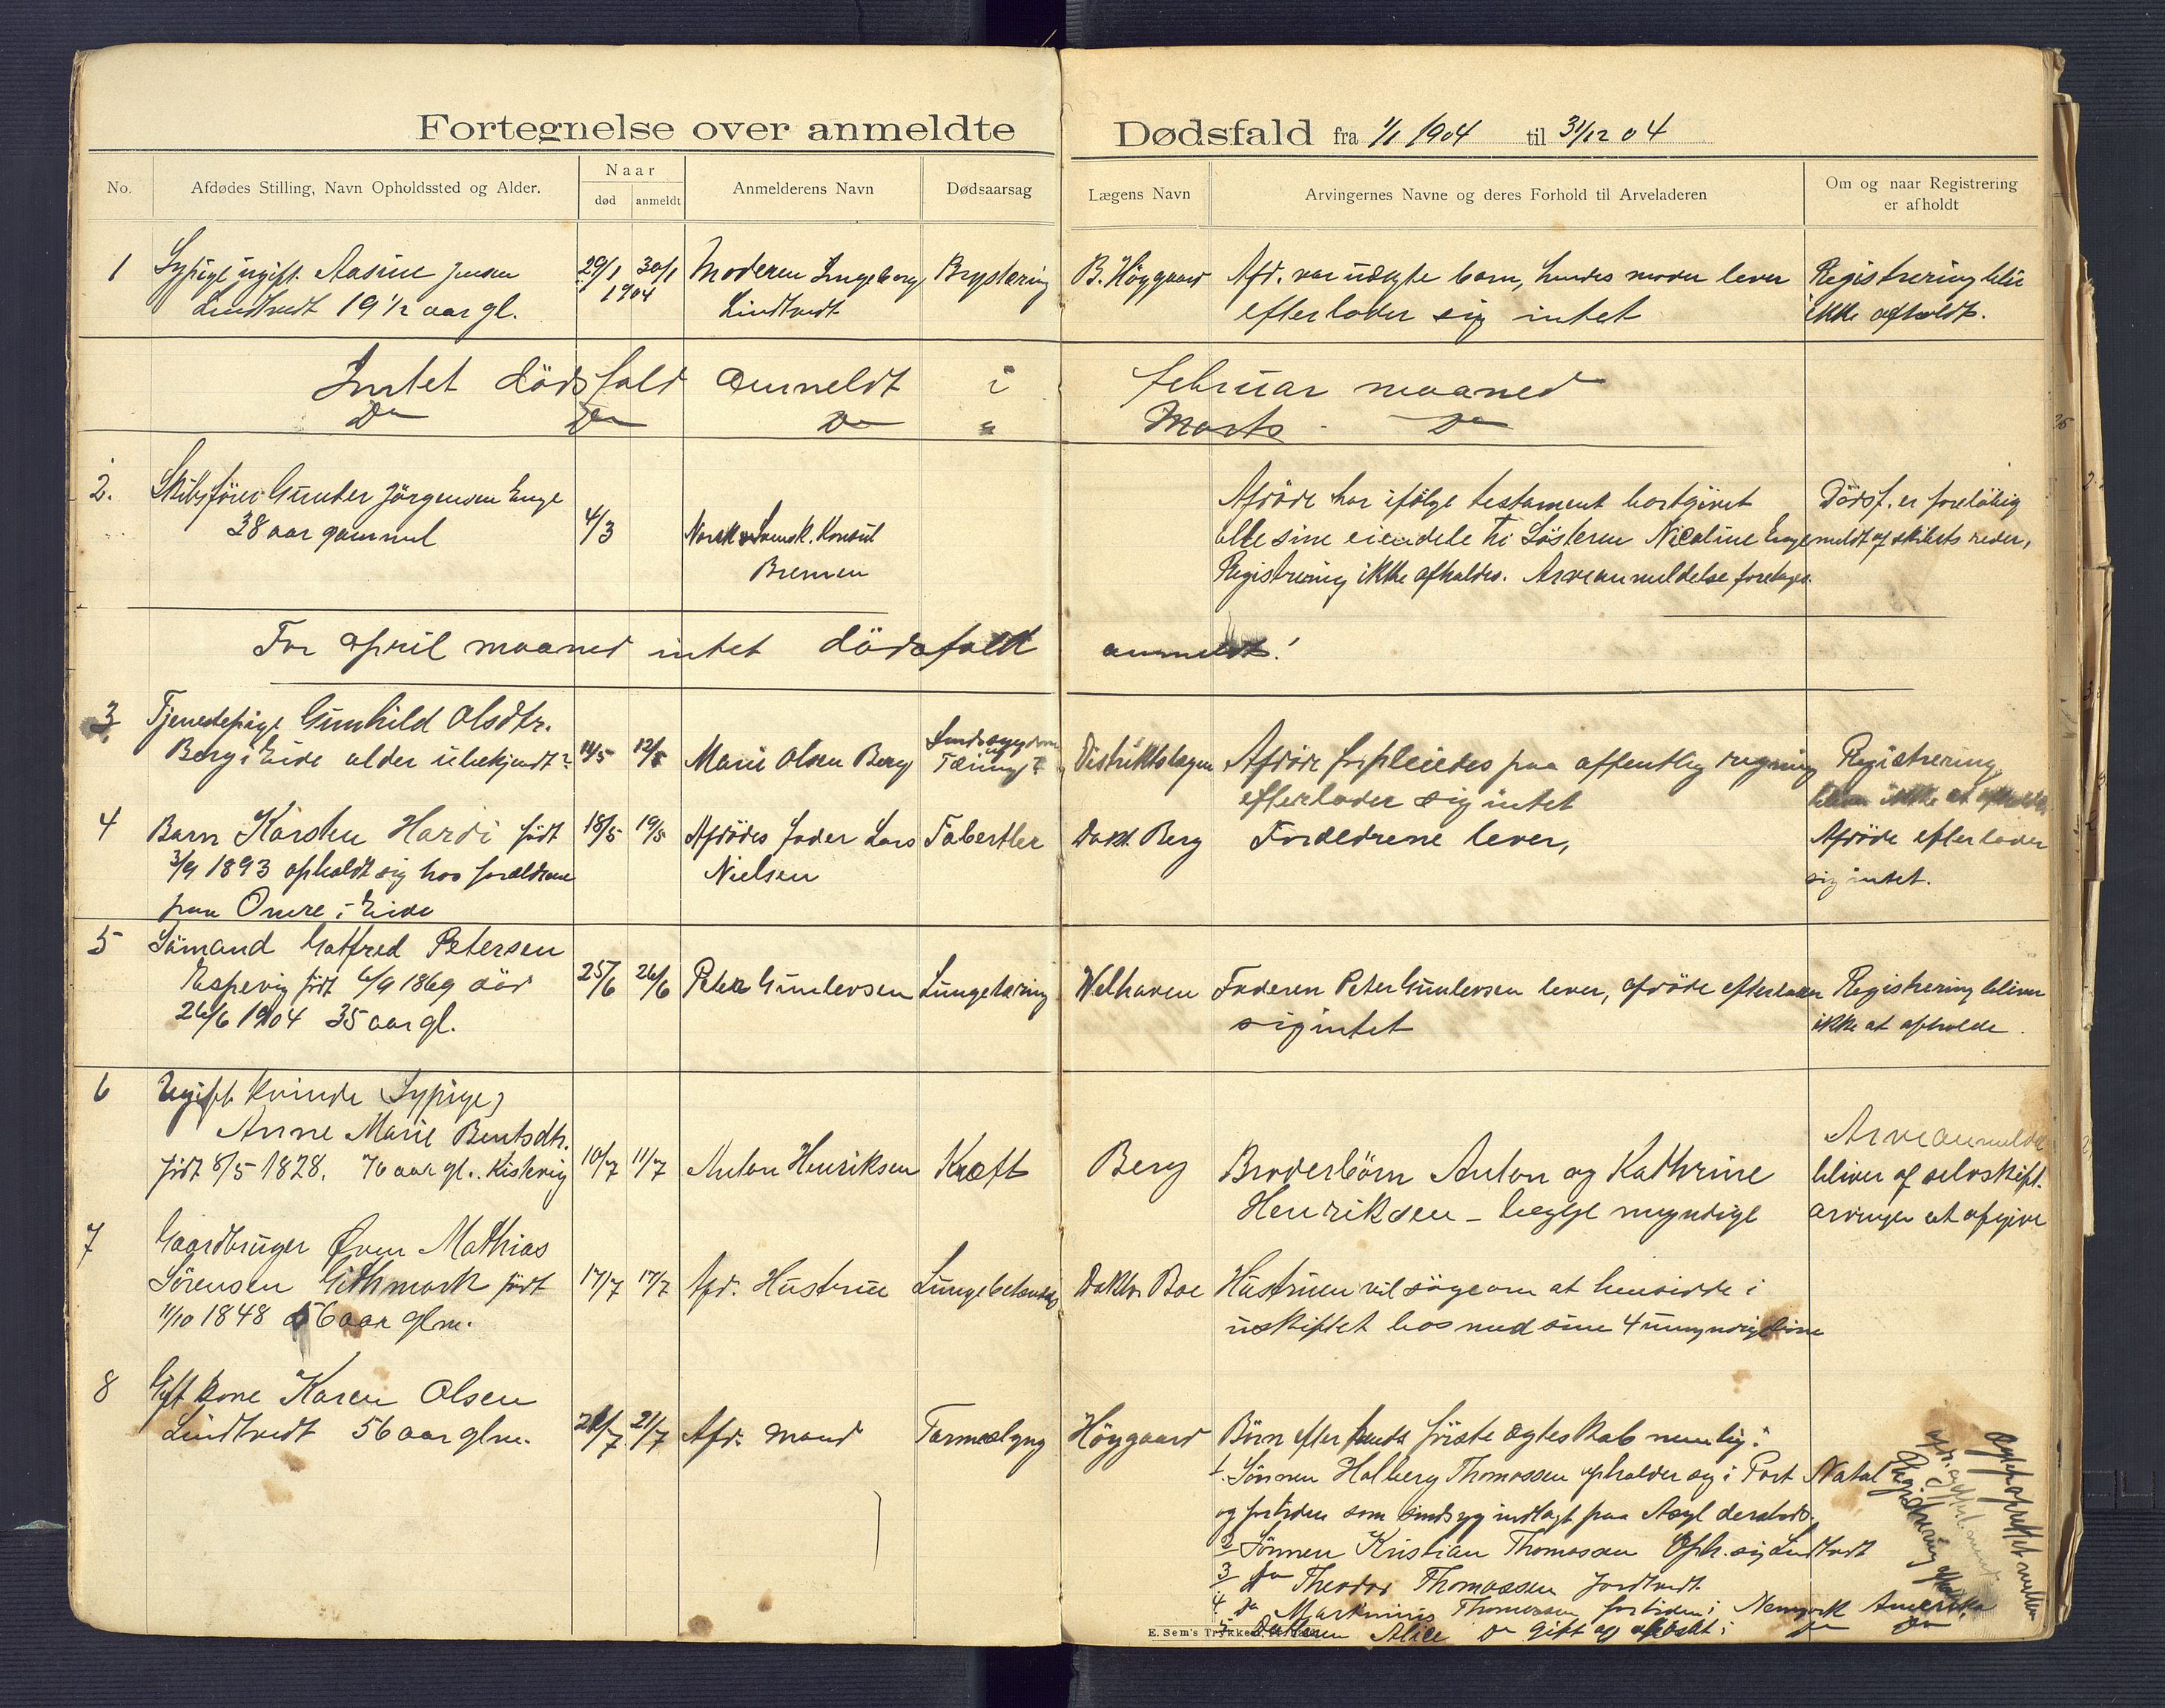 Fortegnelse over anmeldte Dødsfald fra 1/1 1904 til 31/12 04
No. Afdødes Stilling, Navn Opholdssted og Alder. Naar død anmeldt Anmelderens Navn Dødsaarsag Lægens Navn Arvingernes Navne og deres Forhold til Arveladeren Om og naar Registrering er afholdt
1 Sypige ugift. Aasine Jensen 29/1 30/1 Moderen Ingeborg Brystæring B. Höygaard Afd. var uægte barn, hendes moder lever Registrering bliv
Lindtvedt 19 1/2 aar gl. 1904 Lindtvedt efterlader sig intet ikke afholdt.
Intet dödsfald anmeldt i februar maaned
Do Do Do Marts Do
2. Skibsförer Gunder Jörgensen Enge Afdöde har ifölge testament bortgivet Dödsf. er foreløbig
38 aar gammel 4/3 Norsk Svensk. Konsul alle sine eiendele til Söstern Nicoline Enge meldt af skibets reder,
Bremen Registrering ikke afholdes. Arveanmeldelse foretages.
For april maaned intet dödsfald anmeldt!
3 Tjenestepige Gunhild Olsdtr. Sindssygdom
Berg i Eide alder ubekjendt? 11/5 12/5 Marie Olsen Berg Tæring? Distriktslægen Afdöde forpleiedes paa offentlig regning Registrering
efterlader sig intet bliver ikke at afholde
4 Barn Karsten Hardi født 18/5 19/5 Afdødes fader Lars Doct. Berg Forældrene lever, Afdöde efterlader
3/9 1893 opholdt sig hos forældrene Nielsen sig intet.
paa Omre i Eide
5 Sömand Gotfred Petersen
Espevig født 6/9 1869 död 25/6 26/6 Peter Gundersen Lungetæring Welhaven Faderen Peter Gundersen lever, afdöde efterlader Registrering bliver
26/6 1904 35 aar gl. sig intet ikke at afholde.
6 Ugift kvinde (Sypige)
Anne Marie Bentsdtr. Arveanmeldelse
født 8/5 1828. 76 aar gl. Kistevig 10/7 11/7 Anton Henriksen Kræft Berg Broderbörn Anton og Kathrine bliver af selvskift.
Henriksen – begge myndige arvinger at afgive
7 Gaardbruger Øven Mathias
Sörensen Githmark født 17/7 17/7 Afd. Hustrue Lungebetændelse Doktor Boe Hustruen vil söge om at hensidde i
11/10 1848 56 aar glm. uskiftet bo med sine 4 umyndige börn
8 Gift kone Karen Olsen
Lindtvedt 56 aar glm. 21/7 21/7 Afd. mand Tarmslyng Höygaard Börn efter förste ægteskab nemlig:
1. Sönnen Holberg Thomassen opholder sig i Port Natal
og fortiden som sindssyg indlagt paa Asyl dersteds.
2 Sönnen Kristian Thomassen Oph. sig Lindtvedt
3 do Theodor Thomassen
4. do Martinius Thomassen fortiden i Newyork Amerika
5 Datteren Alice do gift og bosat i do do
Registrering
E. Sem's Trykkeri